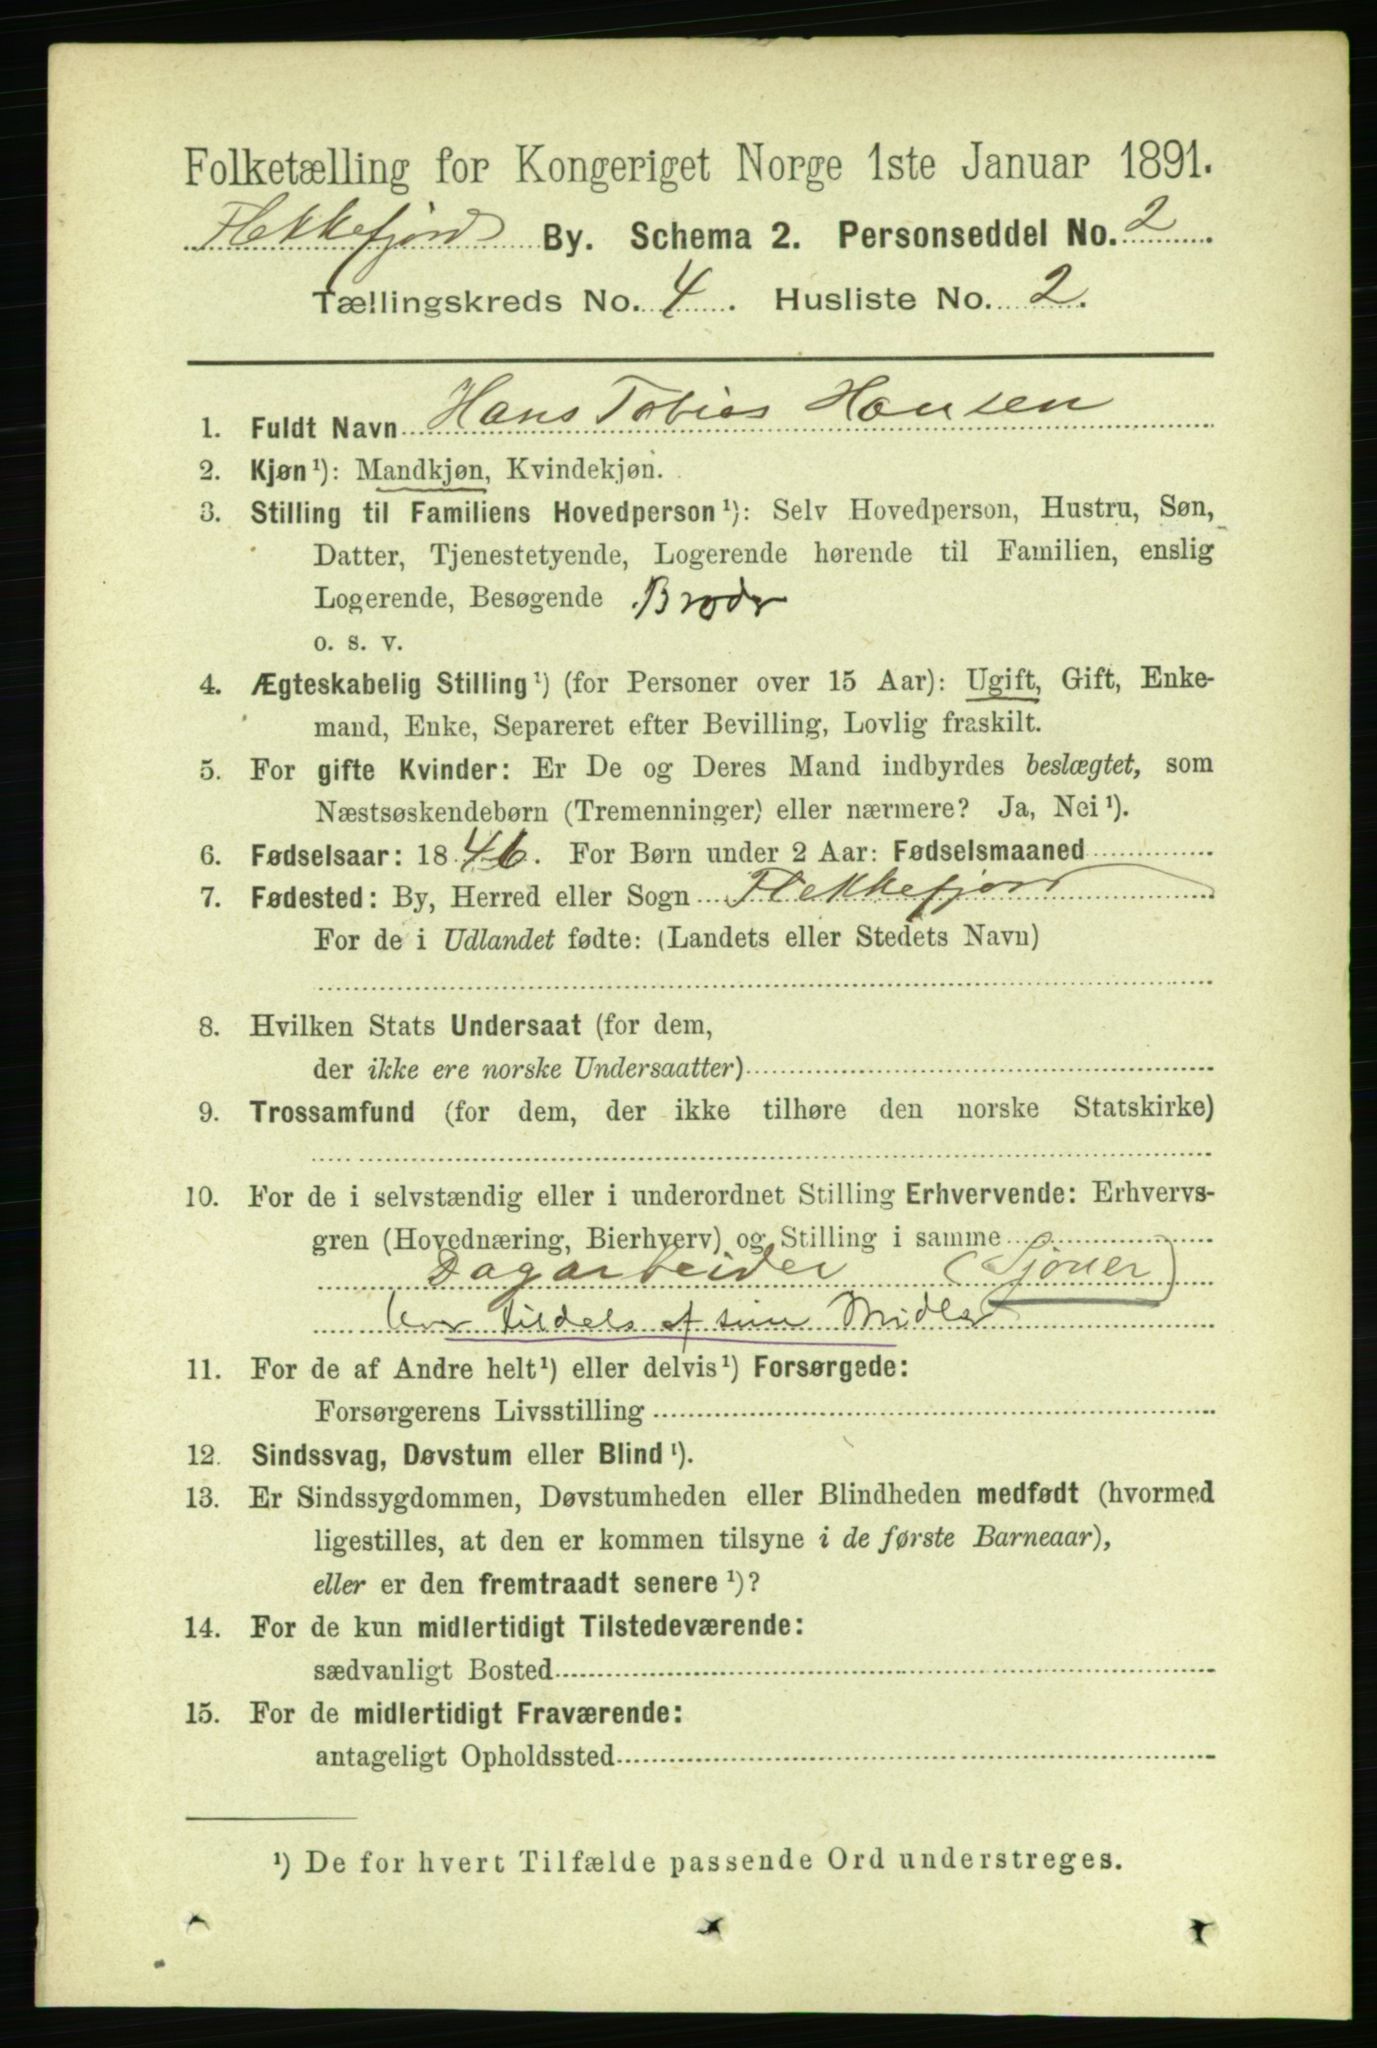 Folketælling for Kongeriget Norge 1ste Januar 1891.
Flekkefjord By. Schema 2. Personseddel No. 2
Tællingskreds No. 4. Husliste No. 2.
1. Fuldt Navn Hans Tobias Hansen
2. Kjøn¹): Mandkjøn, Kvindekjøn.
3. Stilling til Familiens Hovedperson¹): Selv Hovedperson, Hustru, Søn,
Datter, Tjenestetyende, Logerende hørende til Familien, enslig
Logerende, Besøgende Broder
o. s. v.
4. Ægteskabelig Stilling¹) (for Personer over 15 Aar): Ugift, Gift, Enke-
mand, Enke, Separeret efter Bevilling, Lovlig fraskilt.
5. For gifte Kvinder: Er De og Deres Mand indbyrdes beslægtet, som
Næstsøskendebørn (Tremenninger) eller nærmere? Ja, Nei¹).
6. Fødselsaar: 1846. For Børn under 2 Aar: Fødselsmaaned
7. Fødested: By, Herred eller Sogn Flekkefjord
For de i Udlandet fødte: (Landets eller Stedets Navn)
8. Hvilken Stats Undersaat (for dem,
der ikke ere norske Undersaatter)
9. Trossamfund (for dem, der ikke tilhøre den norske Statskirke)
10. For de i selvstændig eller i underordnet Stilling Erhvervende: Erhvervs-
gren (Hovednæring, Bierhverv) og Stilling i samme
Dagarbeider (Sjouer)
lever tildels af sine Midler
11. For de af Andre helt¹) eller delvis¹) Forsørgede:
Forsørgerens Livsstilling
12. Sindssvag, Døvstum eller Blind¹).
13. Er Sindssygdommen, Døvstumheden eller Blindheden medfødt (hvormed
ligestilles, at den er kommen tilsyne i de første Barneaar),
eller er den fremtraadt senere¹)?
14. For de kun midlertidigt Tilstedeværende:
sædvanligt Bosted
15. For de midlertidigt Fraværende:
antageligt Opholdssted
¹) De for hvert Tilfælde passende Ord understreges.